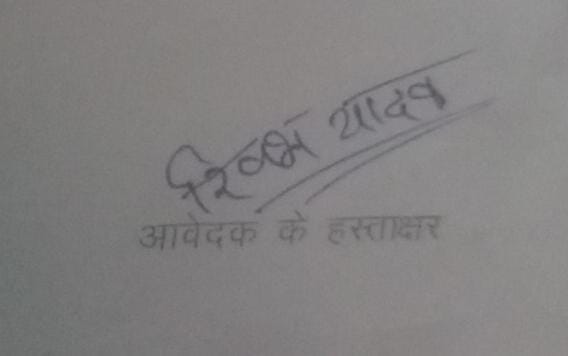 यादव
आवेदक के हस्ताक्षर